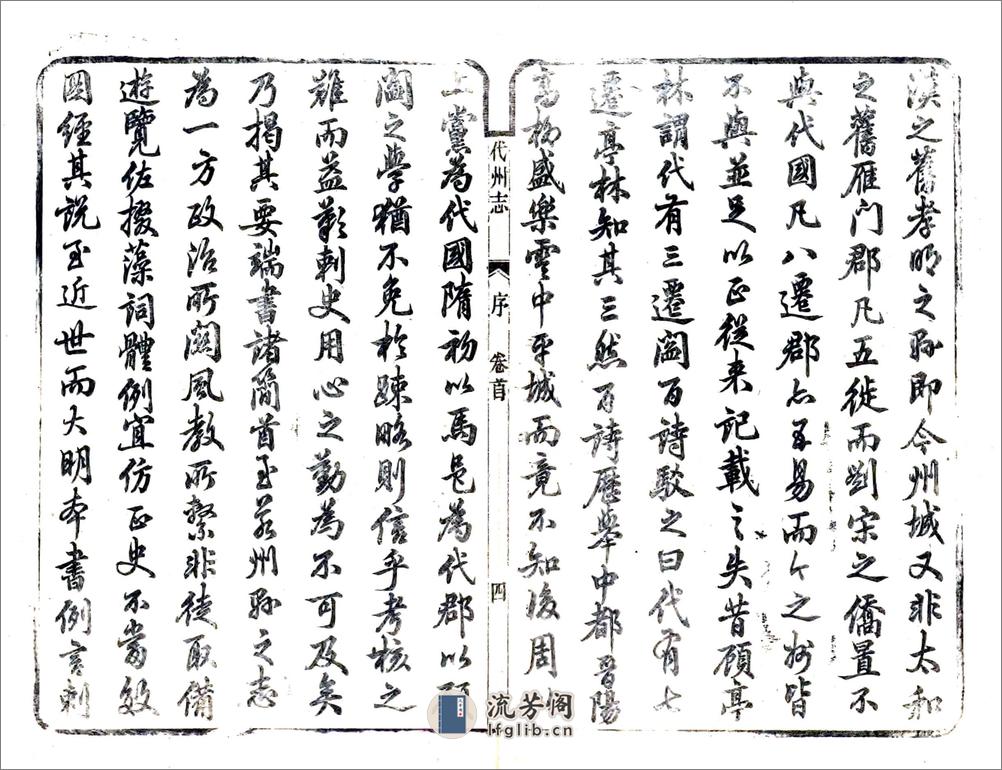 漢之舊孝明之縣即今州城又非太和
之舊雁門郡凡五徙而劉宋之僑置不
與代國凡八遷郡亦再易而今之州皆
不與並足以正從来記載之失昔顧亭
林謂代有三遷閻百詩駁之曰代有七
遷亭林知其三然百詩歷舉中都晋陽
高柳盛樂雲中平城而竟不知後周
上黨為代國隋初以馬邑為代郡以
閻之學猶不免於踈略則信乎考核之
難而益歎刺史用心之勤為不可及矣
乃揭其要端書諸簡首至若州縣之志
為一方政治所關風教所繫非徒取備
遊覽佐掇藻詞體例宜仿正史不當效
圖經其説至近世而大明本書例言刺
代州志
序
卷首
四
流芳阁
lfglib.cn